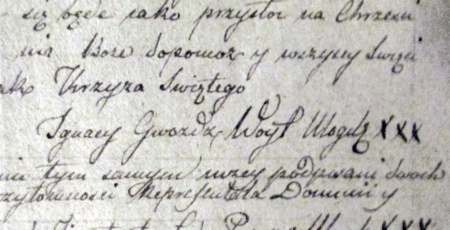 się będę jako przystoi na Chrześci
nia Boże dopomoż y wszyscy Swięci
ako Krzyza Swiętego
Ignacy Gwozdz Woyt Mogi XXX
nie tym samym niżey podpisani dwoch
rzytomności Reprezentata Dominii y
XXX